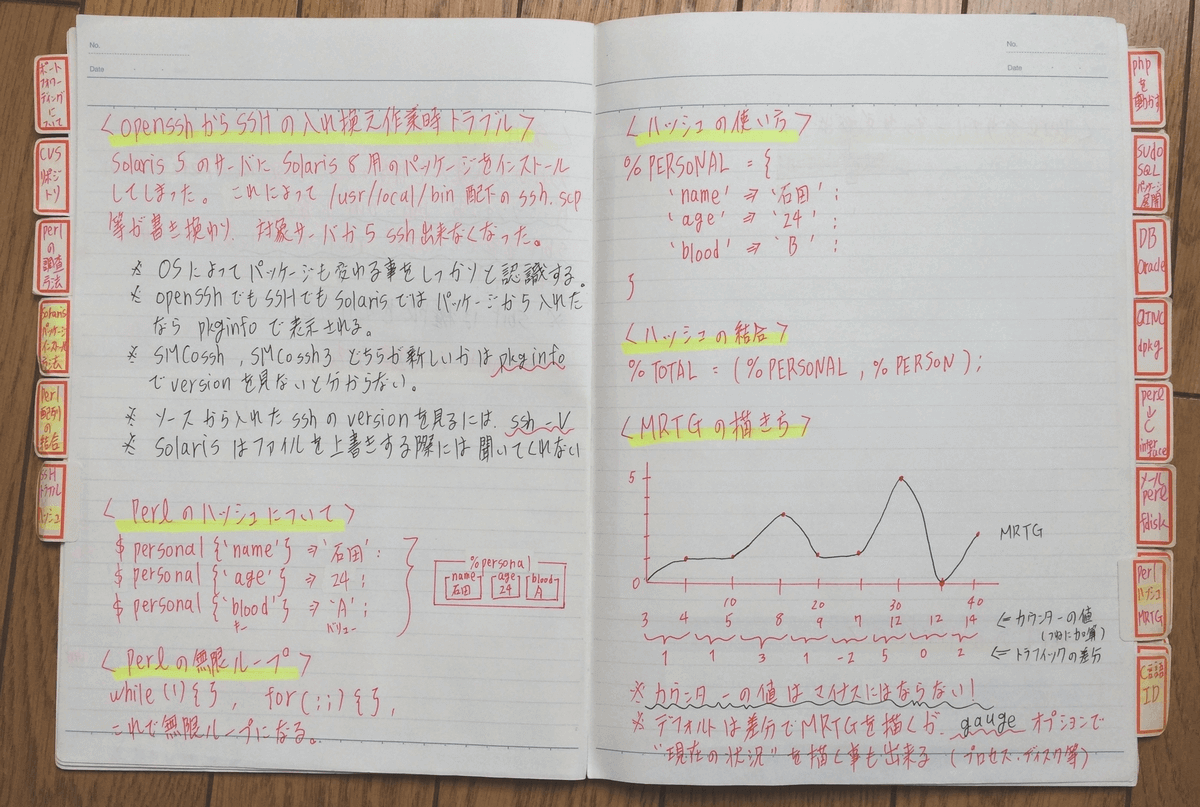 No.
Date
<opensshからSSHの入れ換え作業時トラブル>
Solaris 5 のサーバに Solaris 8 用のパッケージをインストール
してしまった。これによって /usr/local/bin 配下の ssh、scp
等が書き換わり、対象サーバから ssh出来なくなった。
※ OSによってパッケージも変わる事をしっかりと認識する。
※ opensshでもSSHでもSolarisではパッケージから入れた
なら pkginfo で表示される。
※ SMCossh , SMCossh3 どちらが新しいかは pkginfo
で version を見ないと分からない。
※ ソースから入れた ssh の version を見るには、ssh -V
※ Solaris はファイルを上書きする際には聞いてくれない
<Perlのハッシュについて>
$ personal {'name'} => '石田' ;
$ personal {'age'} => 24 ;
$ personal {'blood'} => 'A' ;
キー バリュー
%personal
name age blood
石田 24 A
<Perlの無限ループ>
while (1) { } , for( ; ; ) { } ,
これで無限ループになる。
No.
Date
<ハッシュの使い方>
% PERSONAL = {
'name' => '石田' ;
'age' => '24' ;
'blood' => 'B' ;
}
<ハッシュの結合>
% TOTAL = ( % PERSONAL , % PERSON ) ;
<MRTGの描き方>
5
0
MRTG
10 20 30 40
3 4 5 8 9 7 12 12 14 ⇐ カウンターの値
(つねに加算)
1 1 3 1 -2 5 0 2 ⇐ トラフィックの差分
※ カウンターの値はマイナスにはならない!
※ デフォルトは差分でMRTGを描くが、gauge オプションで
"現在の状況" を描く事も出来る (プロセス・ディスク等)
ポート
フォワー
ディング
に
ついて
CVS
リポジ
トリ
perl
の
調査
方法
Solaris
パッケージ
インストール
方法
Perl
配列
の
結合
SSH
トラブル
ハッシュ
php
を
動かす
sudo
SQL
パッケージ
展開
DB
Oracle
dpkg
perl
と
inter
face
メール
perl
fdisk
Perl
ハッシュ
MRTG
C言語
ID